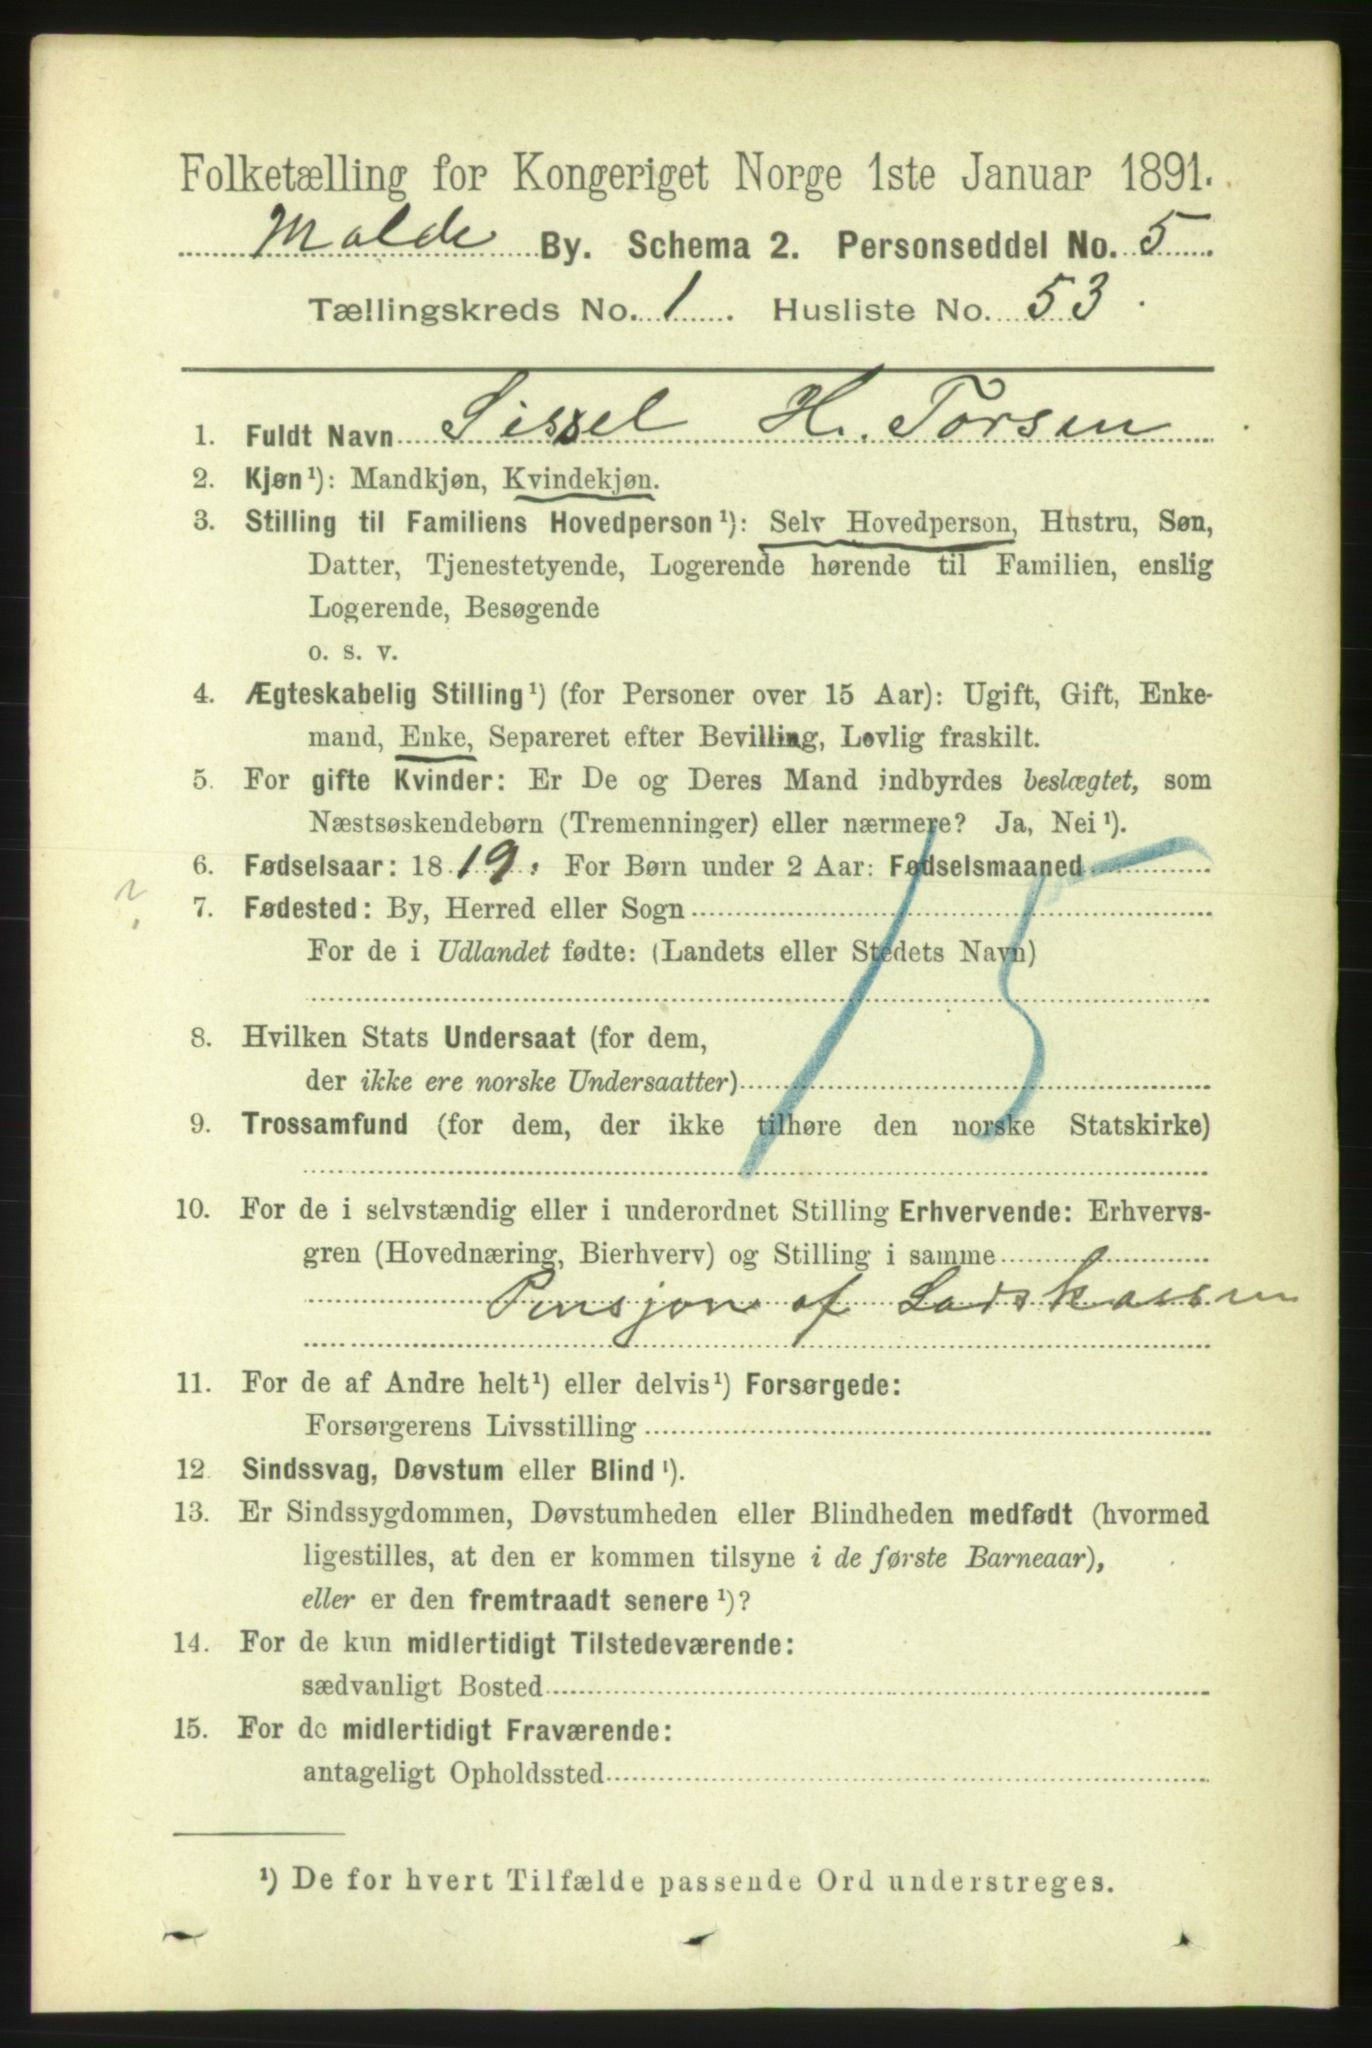 Folketælling for Kongeriget Norge 1ste Januar 1891.
Molde By. Schema 2. Personseddel No. 5
Tællingskreds No. 1. Husliste No. 53.
1. Fuldt Navn Sissel H. Torsen
2. Kjøn¹): Mandkjøn, Kvindekjøn.
3. Stilling til Familiens Hovedperson¹): Selv Hovedperson, Hustru, Søn,
Datter, Tjenestetyende, Logerende hørende til Familien, enslig
Logerende, Besøgende
o. s. v.
4. Ægteskabelig Stilling¹) (for Personer over 15 Aar): Ugift, Gift, Enke-
mand, Enke, Separeret efter Bevilling, Lovlig fraskilt.
5. For gifte Kvinder: Er De og Deres Mand indbyrdes beslægtet, som
Næstsøskendebørn (Tremenninger) eller nærmere? Ja, Nei¹).
6. Fødselsaar: 1819. For Børn under 2 Aar: Fødselsmaaned
?
7. Fødested: By, Herred eller Sogn
15
For de i Udlandet fødte: (Landets eller Stedets Navn)
8. Hvilken Stats Undersaat (for dem,
der ikke ere norske Undersaatter)
9. Trossamfund (for dem, der ikke tilhøre den norske Statskirke)
10. For de i selvstændig eller i underordnet Stilling Erhvervende: Erhvervs-
gren (Hovednæring, Bierhverv) og Stilling i samme
Pensjon af
11. For de af Andre helt¹) eller delvis¹) Forsørgede:
Forsørgerens Livsstilling
12 Sindssvag, Døvstum eller Blind¹).
13. Er Sindssygdommen, Døvstumheden eller Blindheden medfødt (hvormed
ligestilles, at den er kommen tilsyne i de første Barneaar),
eller er den fremtraadt senere¹)?
14. For de kun midlertidigt Tilstedeværende:
sædvanligt Bosted
15. For de midlertidigt Fraværende:
antageligt Opholdssted
¹) De for hvert Tilfælde passende Ord understreges.